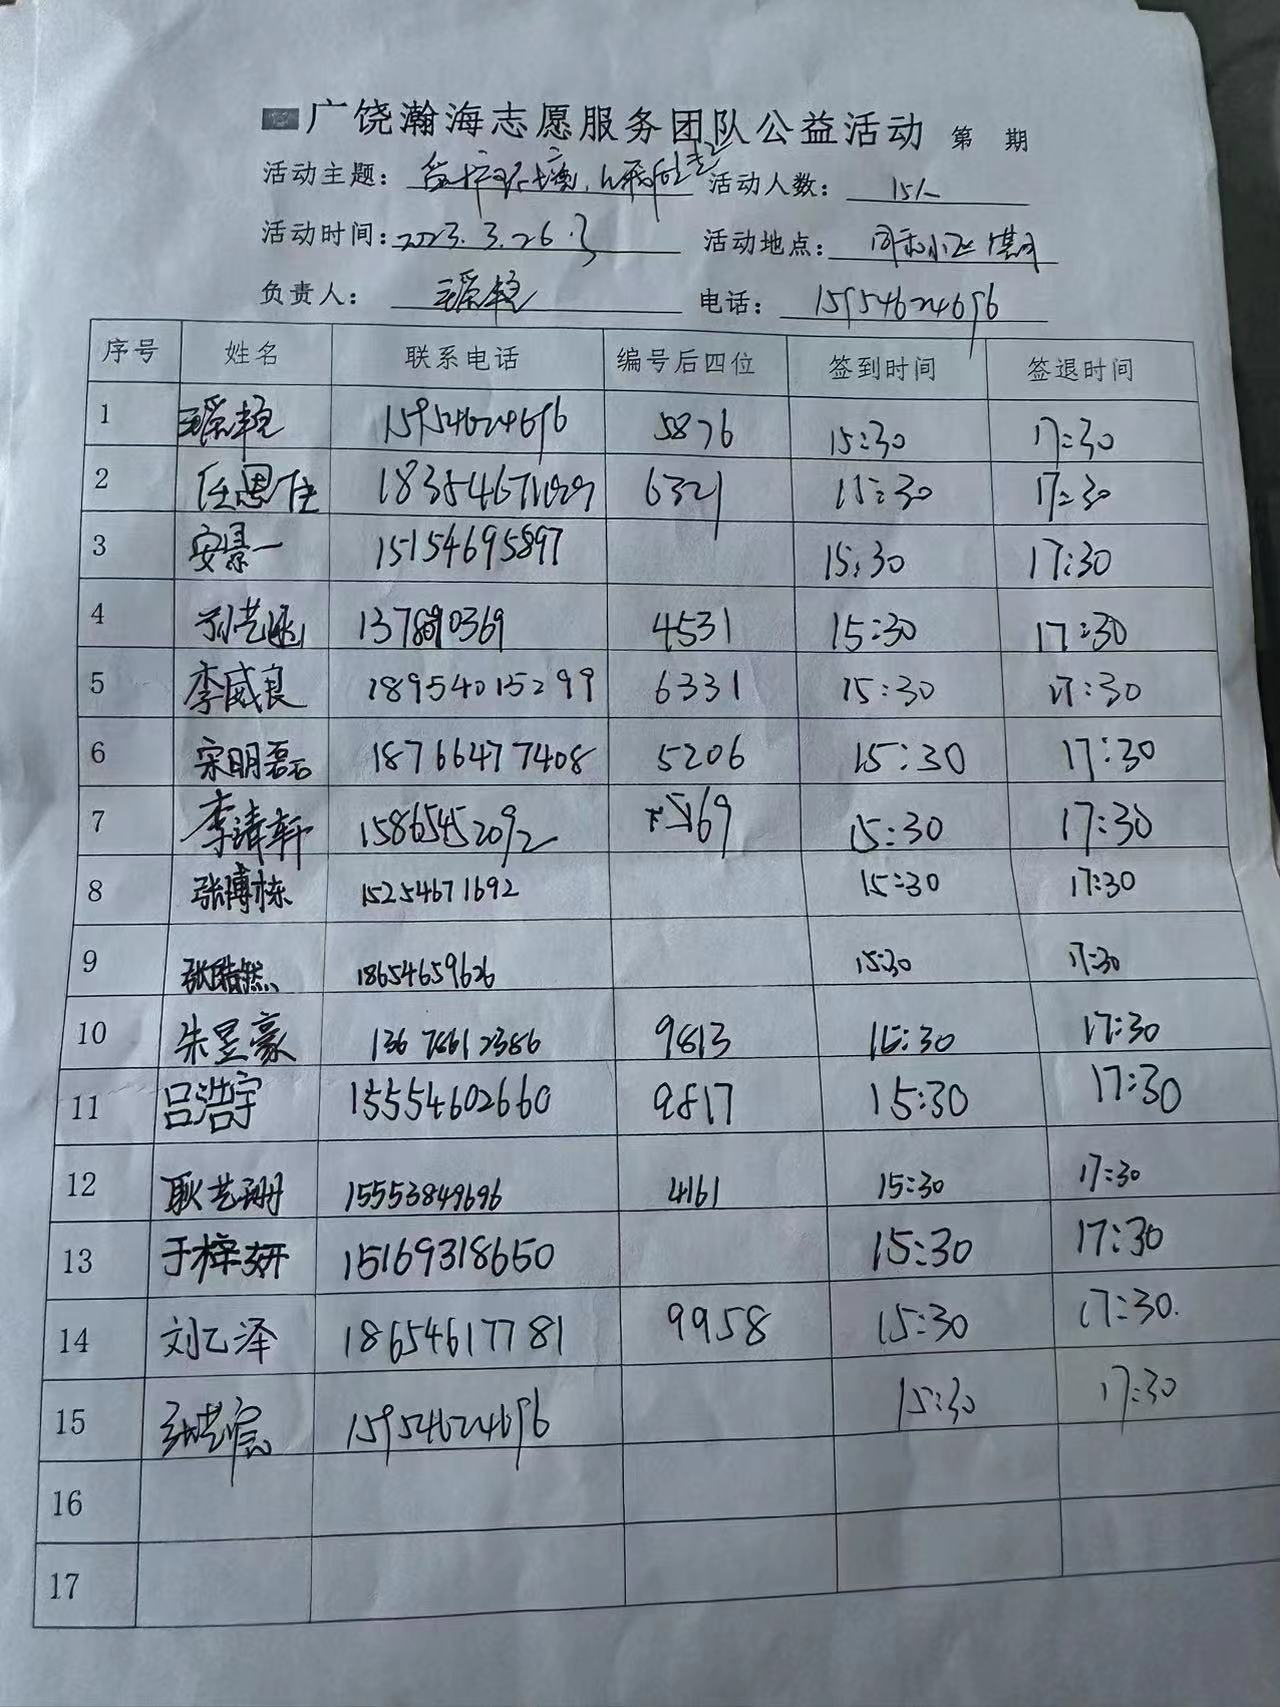 广饶瀚海志愿服务团队公益活动 第 期
活动主题： 活动人数： 15人
活动时间： 2023.3.26. 活动地点：
负责人： 电话： 15954624696
序号 姓名 联系电话 编号后四位 签到时间 签退时间
1 15954624696 5876 15:30 17:30
2 任恩任 6321 15:30 17:30
3 安景一 15154695897 15:30 17:30
4 孙艺涵 4531 15:30 17:30
5 李威良 18954015299 6331 15:30 17:30
6 宋明磊 18766477408 5206 15:30 17:30
7 李清轩 15865452092 15:30 17:30
8 张博栋 15254671692 15:30 17:30
9 张皓然 18654659626 15:30 17:30
10 朱昱豪 9813 15:30 17:30
11 吕浩宇 15554602660 9817 15:30 17:30
12 耿艺珊 15553849696 4161 15:30 17:30
13 于梓妍 15169318650 15:30 17:30
14 刘乙泽 18654617781 9958 15:30 17:30.
15 15954624696 15:30 17:30
16
17